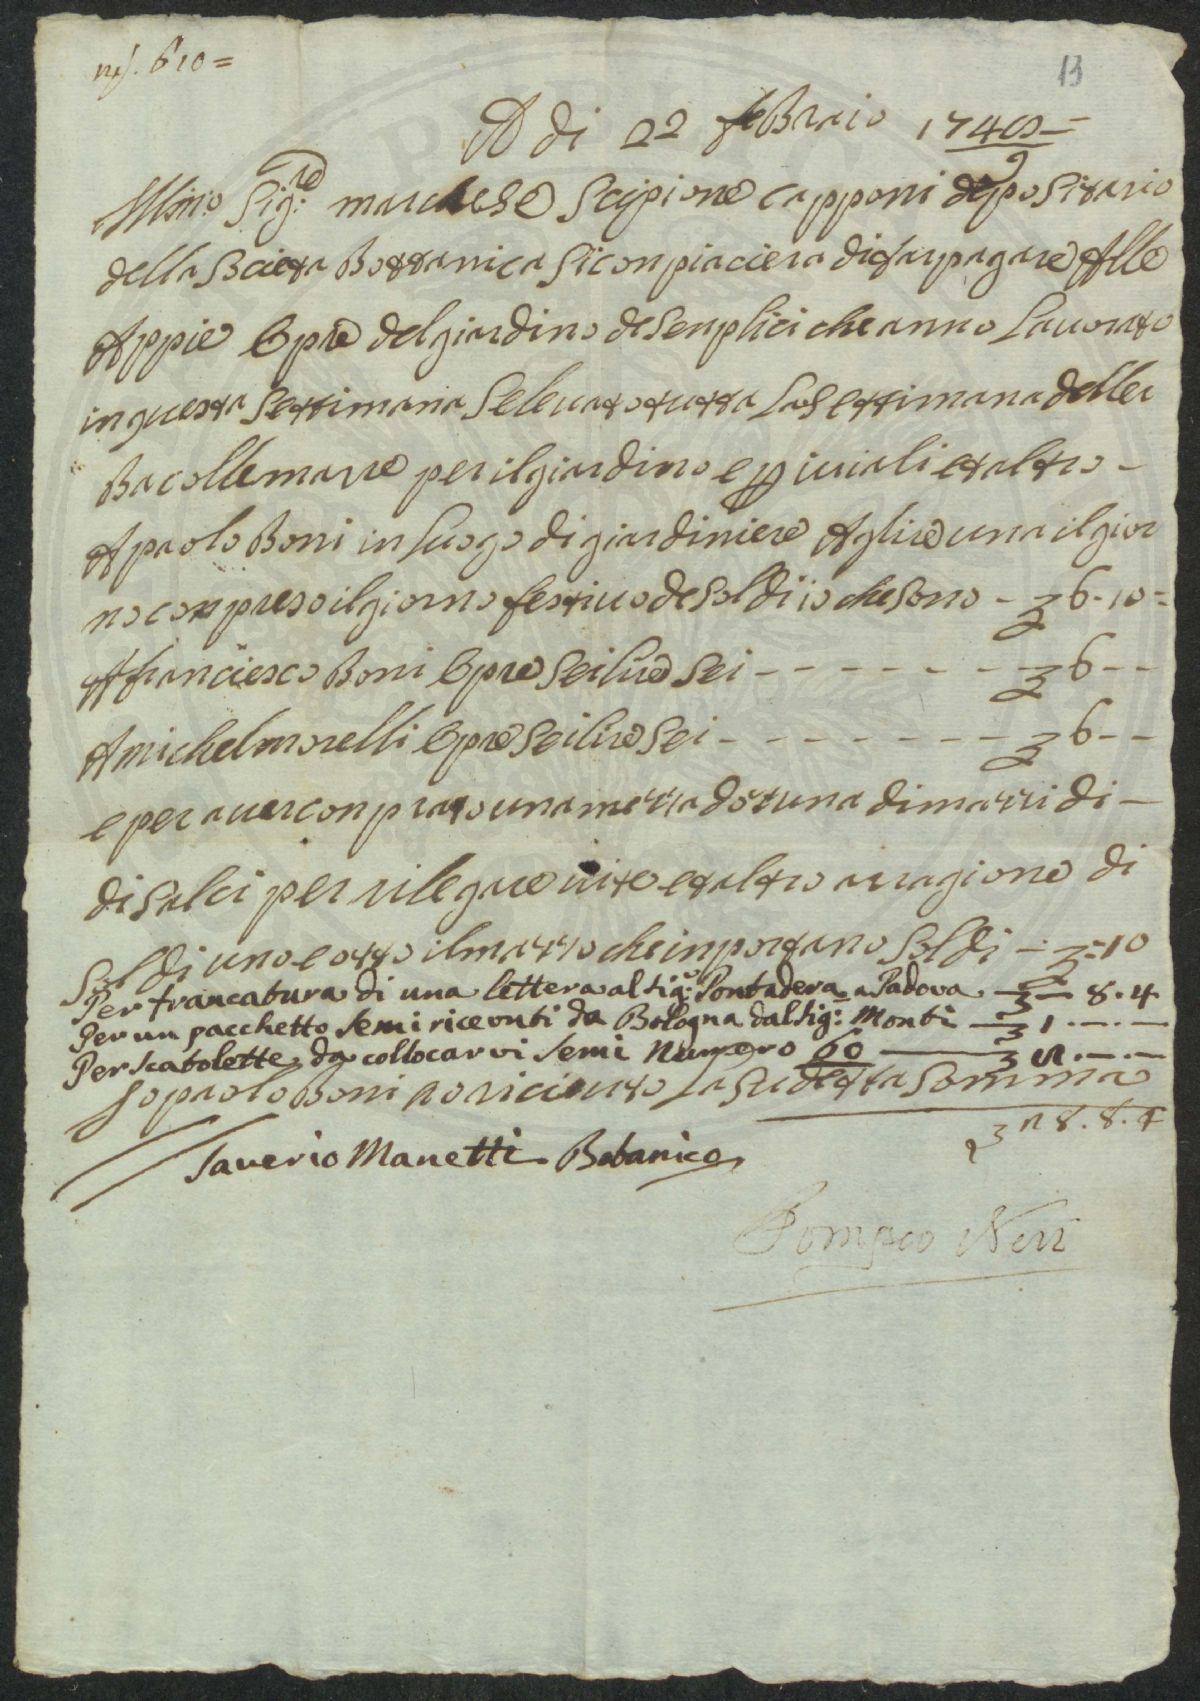 n.º 610=
13
A di 22 feBraio 1740=
9
Illmo Sig:re marchese Scipione capponi depositario
della Societa Bottanica Si conpiaciera di far pagare Alle
Appie Opre del giardino de Senplici che anno Lauorato
in questa Settimana Se leuato tutta La Settimana delle
Bacollemarre per il giardino e p i uiali et altro -
A paolo Boni in Luogo di giardiniere A lire una il gior
no conpreso il giorno festiuo de Soldi 10 che sono - 6.10=
A franciesco Boni Opre Sei lire Sei - - - - - - - 6 - -
A michel morelli Opre Sei lire Sei - - - - - - - 6 - -
e per auer conprato una mezza dozzina di mazzi di -
di Salci per rilegare uite et altro a ragione di
Soldi uno e otto il mazzo che inportano Soldi - : - 10
Per francatura di una lettera al Sig:e Pontadera a Padova — 8.4
Per un pacchetto semi riceuuti da Bologna dal Sig: Monti — 1.—.—
Per scatolette da collocarvi semi Numero 60 — 2.—.—
Io paolo Boni o riciuuto La sudetta Somma
28.8.4
Saverio Manetti Botanico
Pompeo Neri